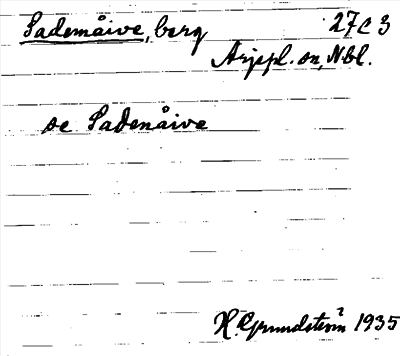 Sademåive, berg 27C3
Arjepl. sn, Nbl.
se Sadenåive
H. Grundström 1935